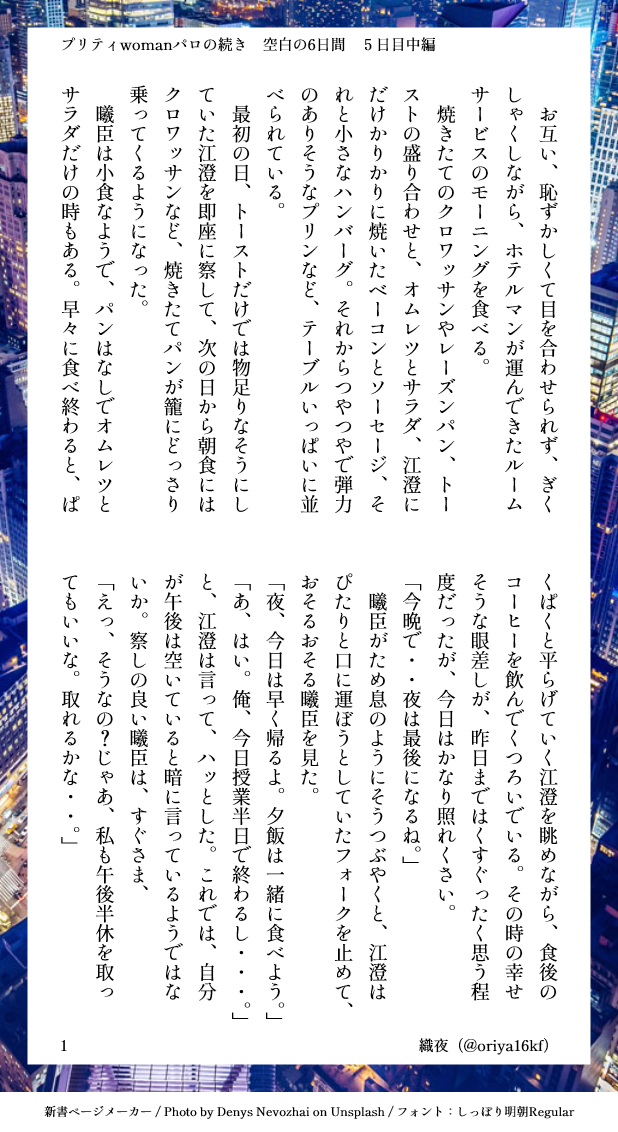 プリティwomanパロの続き　空白の6日間　５日目中編
　お互い、恥ずかしくて目を合わせられず、ぎく
しゃくしながら、ホテルマンが運んできたルーム
サービスのモーニングを食べる。
　焼きたてのクロワッサンやレーズンパン、トー
ストの盛り合わせと、オムレツとサラダ、江澄に
だけかりかりに焼いたベーコンとソーセージ、そ
れと小さなハンバーグ。それからつやつやで弾力
のありそうなプリンなど、テーブルいっぱいに並
べられている。
　最初の日、トーストだけでは物足りなそうにし
ていた江澄を即座に察して、次の日から朝食には
クロワッサンなど、焼きたてパンが籠にどっさり
乗ってくるようになった。
　曦臣は小食なようで、パンはなしでオムレツと
サラダだけの時もある。早々に食べ終わると、ぱ
くぱくと平らげていく江澄を眺めながら、食後の
コーヒーを飲んでくつろいでいる。その時の幸せ
そうな眼差しが、昨日まではくすぐったく思う程
度だったが、今日はかなり照れくさい。
「今晩で・・夜は最後になるね。」
　曦臣がため息のようにそうつぶやくと、江澄は
ぴたりと口に運ぼうとしていたフォークを止めて、
おそるおそる曦臣を見た。
「夜、今日は早く帰るよ。夕飯は一緒に食べよう。」
「あ、はい。俺、今日授業半日で終わるし・・・。」
と、江澄は言って、ハッとした。これでは、自分
が午後は空いていると暗に言っているようではな
いか。察しの良い曦臣は、すぐさま、
「えっ、そうなの？じゃあ、私も午後半休を取っ
てもいいな。取れるかな・・。」
1
織夜（@oriya16kf）
新書ページメーカー / Photo by Denys Nevozhai on Unsplash / フォント：しっぽり明朝Regular